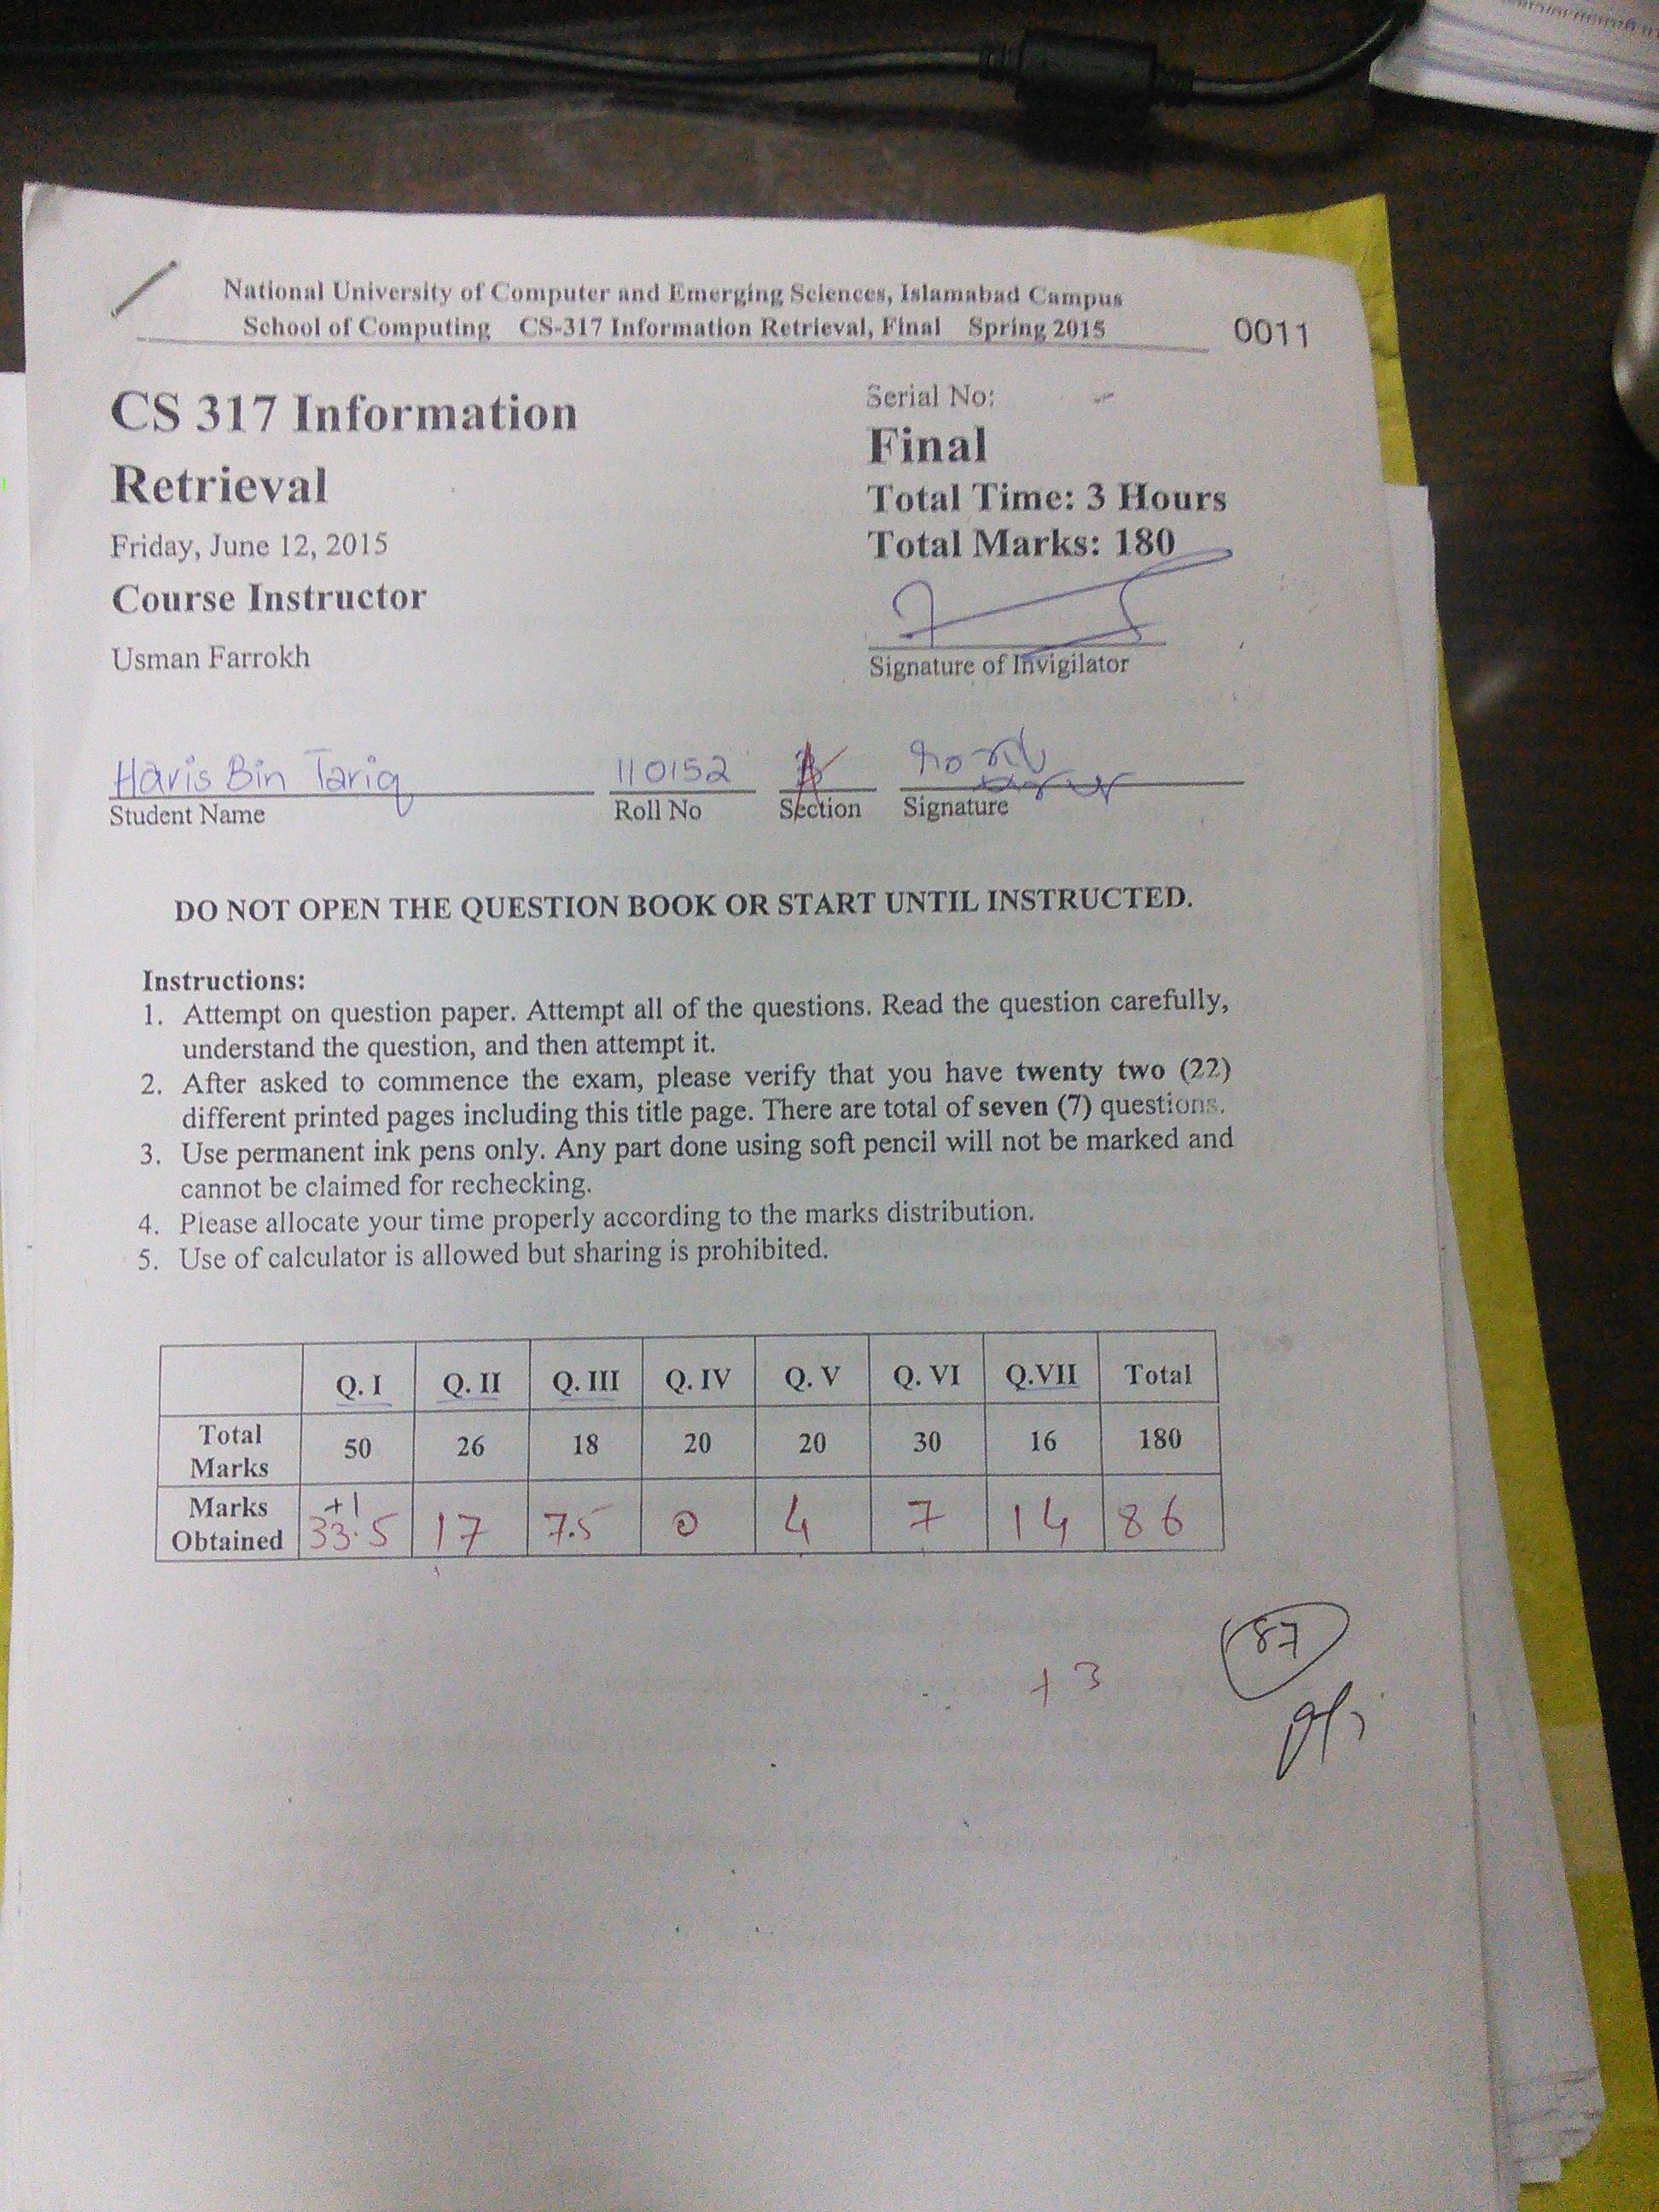 National University of Computer and Emerging Sciences, Islamabad Campus
School of Computing CS-317 Information Retrieval, Final Spring 2015
0011
CS 317 Information
Retrieval
Friday, June 12, 2015
Course Instructor
Usman Farrokh
Serial No:
Final
Total Time: 3 Hours
Total Marks: 180
Signature of Invigilator
Haris Bin Tariq 110152 A
Student Name Roll No Section Signature
DO NOT OPEN THE QUESTION BOOK OR START UNTIL INSTRUCTED.
Instructions:
1. Attempt on question paper. Attempt all of the questions. Read the question carefully,
understand the question, and then attempt it.
2. After asked to commence the exam, please verify that you have twenty two (22)
different printed pages including this title page. There are total of seven (7) questions.
3. Use permanent ink pens only. Any part done using soft pencil will not be marked and
cannot be claimed for rechecking.
4. Please allocate your time properly according to the marks distribution.
5. Use of calculator is allowed but sharing is prohibited.
Q. I Q. II Q. III Q. IV Q. V Q. VI Q.VII Total
Total Marks 50 26 18 20 20 30 16 180
Marks Obtained +1 33.5 17 7.5 0 4 7 14 86
87
+3